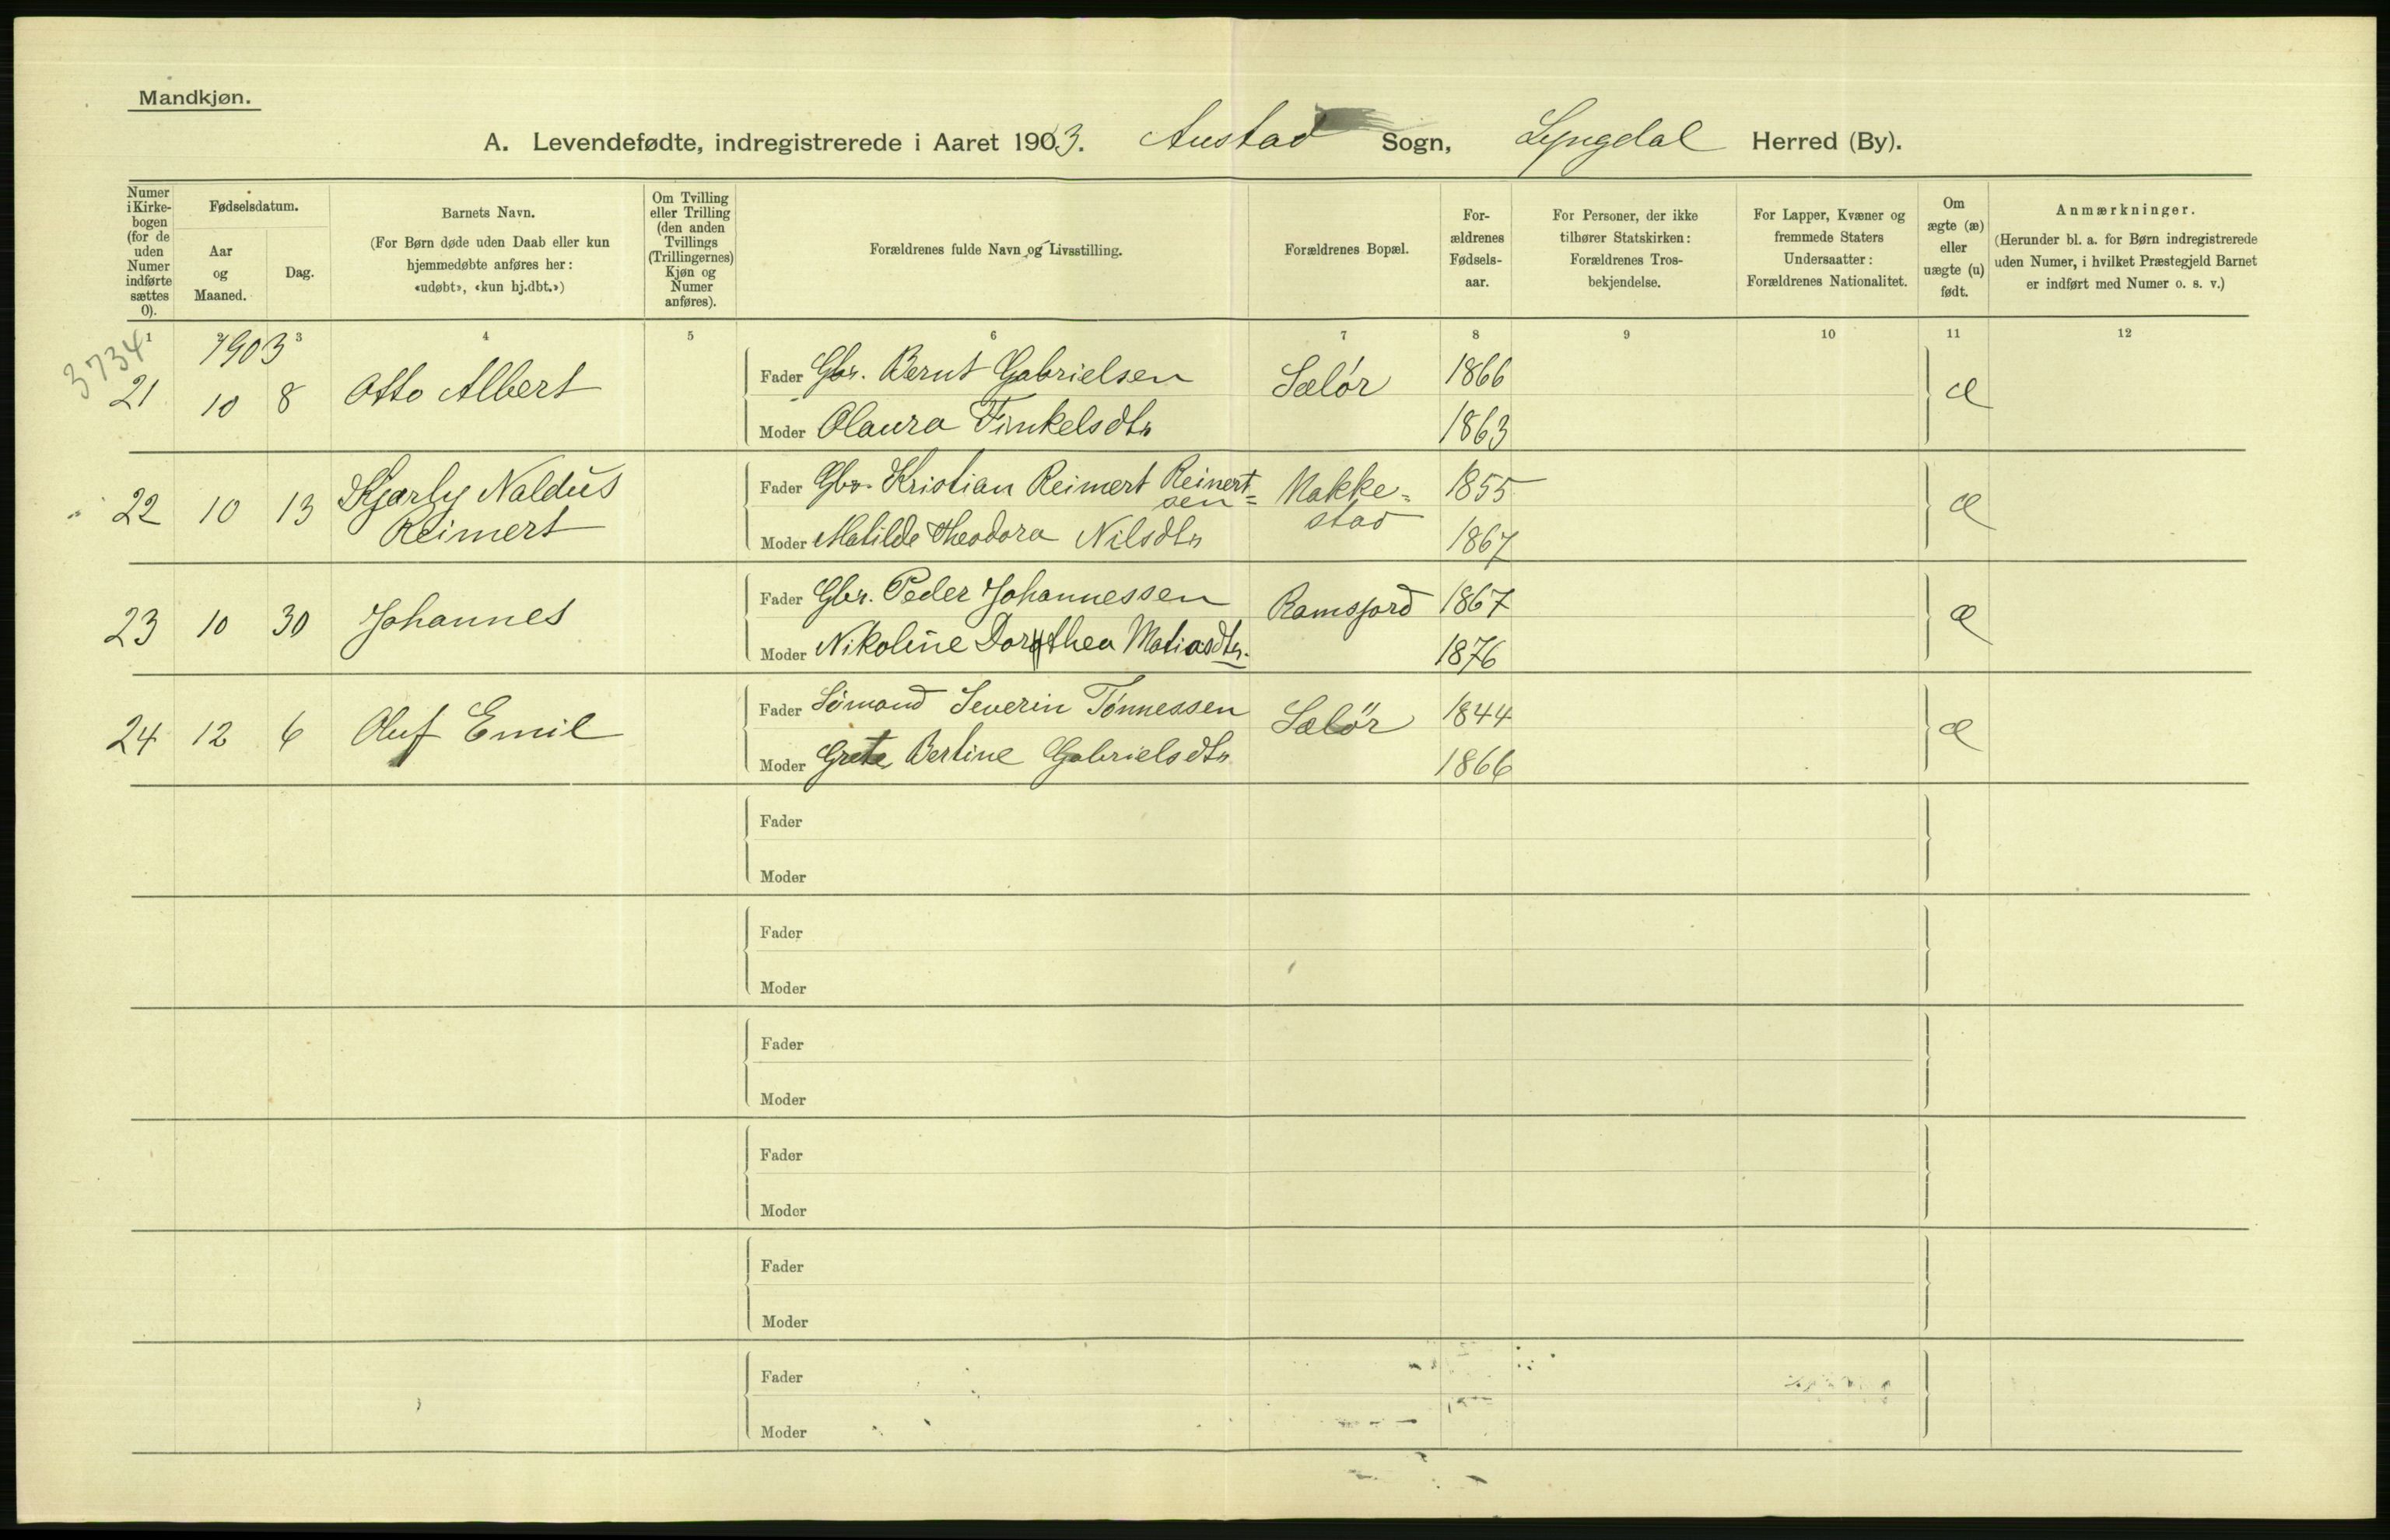 Mandkjøn.
A. Levendefødte, indregistrerede i Aaret 1903. Austad Sogn, Lyngdal Herred (By).
Numer i Kirkebogen (for de uden Numer indførte sættes 0).
Fødselsdatum.
Aar og Maaned.
Dag.
Barnets Navn.
(For Børn døde uden Daab eller kun hjemmedøbte anføres her: «udøbt», «kun hj.dbt.»)
Om Tvilling eller Trilling (den anden Tvillings (Trillingernes) Kjøn og Numer anføres).
Forældrenes fulde Navn og Livsstilling.
Forældrenes Bopæl.
Forældrenes Fødselsaar.
For Personer, der ikke tilhører Statskirken: Forældrenes Trosbekjendelse.
For Lapper, Kvæner og fremmede Staters Undersaatter: Forældrenes Nationalitet.
Om ægte (æ) eller uægte (u) født.
Anmærkninger.
(Herunder bl. a. for Børn indregistrerede uden Numer, i hvilket Præstegjeld Barnet er indført med Numer o. s. v.)
1 2 3 4 5 6 7 8 9 10 11 12
3734
1903
21 10 8 Otto Albert Fader Gbr. Bernt Gabrielsen Sælør 1866 æ
Moder Olaura Finkelsdtr 1863
22 10 13 Kjarly Naldus Fader Gbr. Kristian Reimert Reinert= Nakke= 1855 æ
Reimert sen stad
Moder Matilde Theodora Nilsdtr 1867
23 10 30 Johannes Fader Gbr. Peder Johannessen Ramsjord 1867 æ
Moder Nikoline Dorothea Matiasdtr. 1876
24 12 6 Oluf Emil Fader Sømand Severin Tønnessen Sælør 1844 æ
Moder Grete Bertine Gabrielsdtr 1866
Fader
Moder
Fader
Moder
Fader
Moder
Fader
Moder
Fader
Moder
Fader
Moder